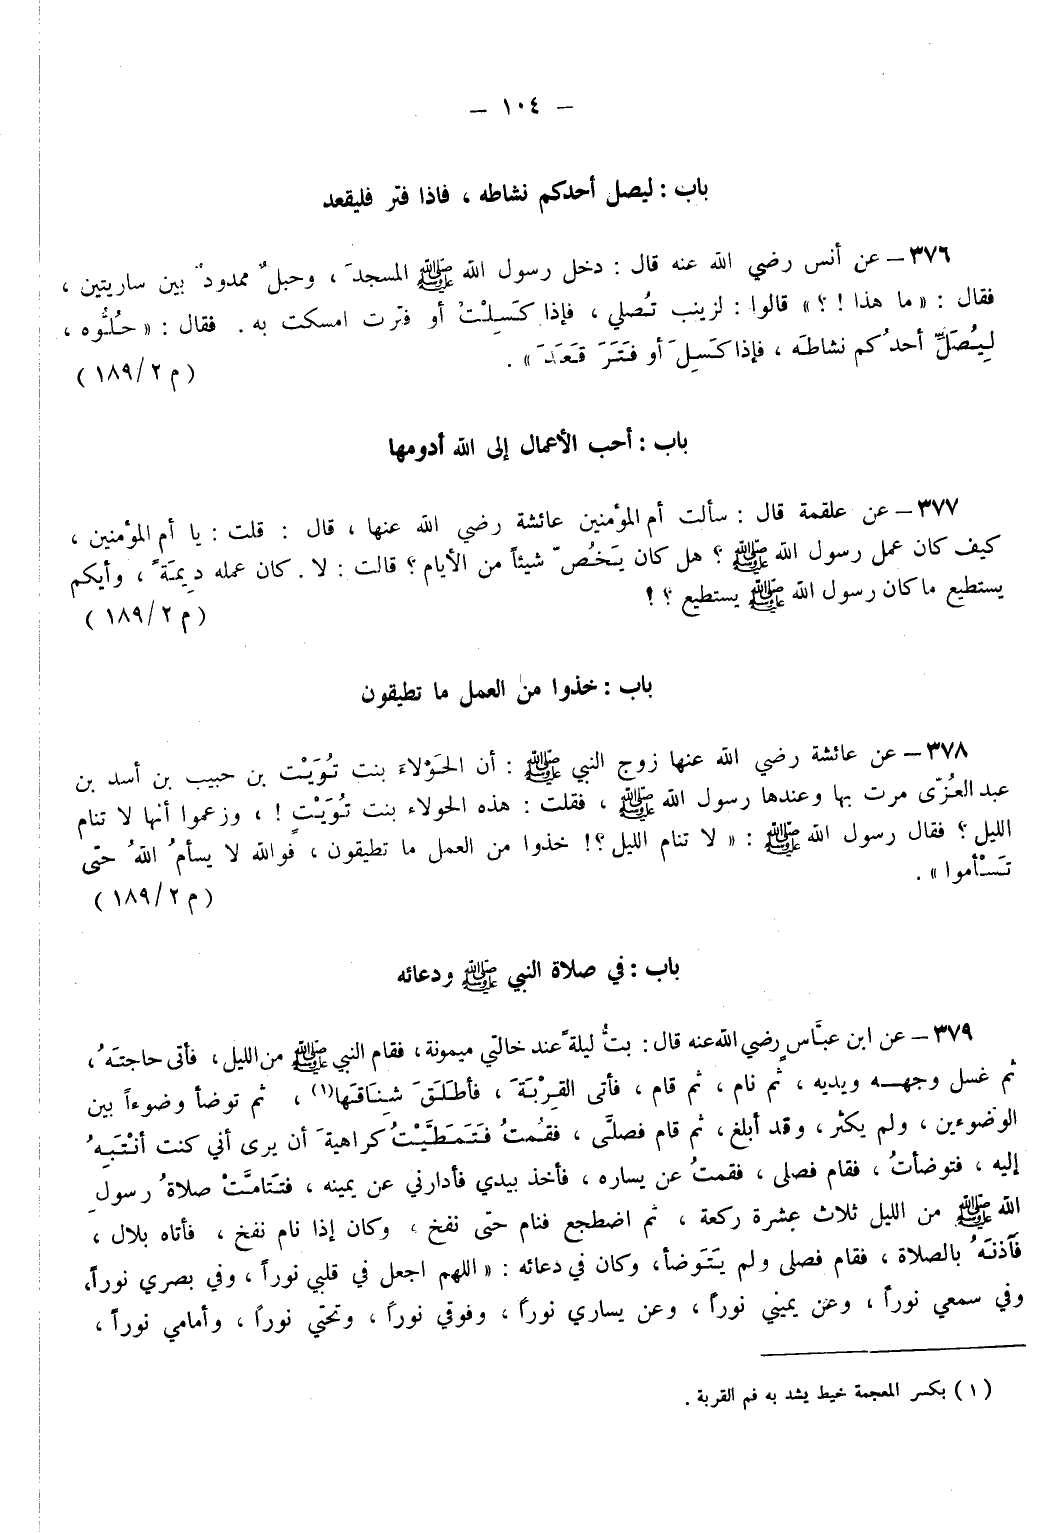 — ١٠٤ —
باب : ليصل أحدكم نشاطه ، فاذا فتر فليقعد
٣٧٦ – عن أنس رضي الله عنه قال : دخل رسول الله ﷺ المسجدَ ، وحبلٌ ممدودٌ بين ساريتين ،
فقال : « ما هذا ! ؟ » قالوا : لزينب تُصلي ، فإذا كَسِلَتْ أو فترت امسكت به . فقال : « حُلُّوه ،
لِيُصَلِّ أحدُكم نشاطَه ، فإذا كَسِلَ أو فَتَرَ قَعَدَ » .
( م ٢/ ١٨٩ )
باب : أحب الأعمال إلى الله أدومها
٣٧٧ – عن علقمة قال : سألت أم المؤمنين عائشة رضي الله عنها ، قال : قلت : يا أم المؤمنين ،
كيف كان عمل رسول الله ﷺ ؟ هل كان يَخُصّ شيئاً من الأيام ؟ قالت : لا . كان عمله دِيمَةً ، وأيكم
يستطيع ما كان رسول الله ﷺ يستطيع ؟ !
( م ٢/ ١٨٩ )
باب : خذوا من العمل ما تطيقون
٣٧٨ – عن عائشة رضي الله عنها زوج النبي ﷺ : أن الحَوْلاءَ بنت تُوَيْت بن حبيب بن أسد بن
عبد العُزّى مرت بها وعندها رسول الله ﷺ ، فقلت : هذه الحولاء بنت تُوَيْتٍ ! ، وزعموا أنها لا تنام
الليل ؟ فقال رسول الله ﷺ : « لا تنام الليل ؟! خذوا من العمل ما تطيقون ، فوالله لا يسأمُ اللهُ حتى
تَسْأموا » .
( م ٢/ ١٨٩ )
باب : في صلاة النبي ﷺ ودعائه
٣٧٩ – عن ابن عبَّاسٍ رضي الله عنه قال : بتُّ ليلةً عند خالتي ميمونة ، فقام النبي ﷺ من الليل ، فأتى حاجتَهُ ،
ثم غسل وجهه ويديه ، ثم نام ، ثم قام ، فأتى القِرْبَةَ ، فأطلَقَ شِنَاقَها(١) ، ثم توضأ وضوءاً بين
الوضوءين ، ولم يكثر ، وقد أبلغ ، ثم قام فصلَّى ، فقمتُ فَتَمَطَّيْتُ كراهيةَ أن يرى أني كنت أنْتَبِهُ
إليه ، فتوضأتُ ، فقام فصلى ، فقمتُ عن يساره ، فأخذ بيدي فأدارني عن يمينه ، فتَتَامَّتْ صلاةُ رسولِ
الله ﷺ من الليل ثلاث عشرة ركعة ، ثم اضطجع فنام حتى نفخ ، وكان إذا نام نفخ ، فأتاه بلال ،
فآذنَهُ بالصلاة ، فقام فصلى ولم يَتَوَضأ ، وكان في دعائه : « اللهم اجعل في قلبي نوراً ، وفي بصري نوراً ،
وفي سمعي نوراً ، وعن يميني نوراً ، وعن يساري نوراً ، وفوقي نوراً ، وتحتي نوراً ، وأمامي نوراً ،
( ١ ) بكسر المعجمة خيط يشد به فم القربة .